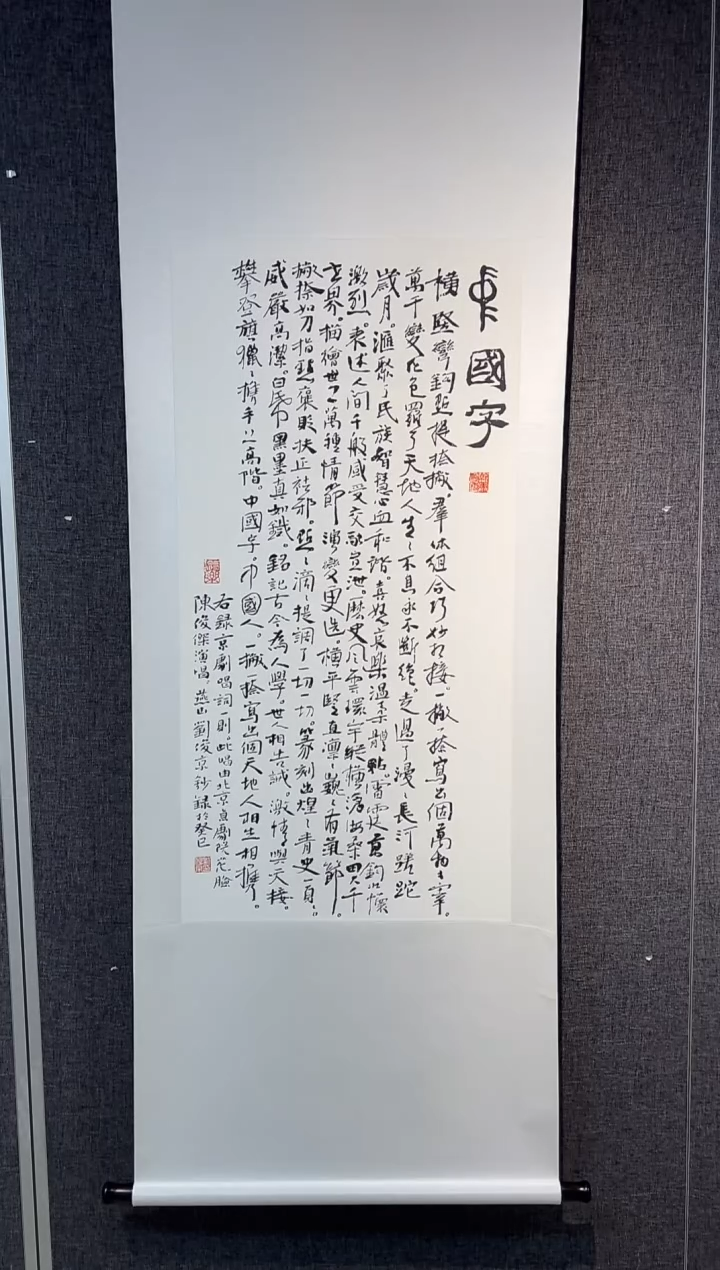 中國字
橫豎彎鉤點提捺撇。羣体組合巧妙相接。一撇一捺寫出個萬物主宰。
萬千變化包羅了天地人生生不息永不斷絕。走過了漫漫長河蹉跎
歲月。滙聚了民族智慧心血和諧。喜怒哀樂溫柔體點。雷霆萬鈞
激烈。表述人間千般感受交融宣泄。歷史風雲環宇縱橫滄海桑田大千
世界。描繪世万萬種情節演變更迭。橫平豎直凛凛巍巍有氣節。
撇捺如刀指點褒貶扶正祛邪。點點滴提調了一切一切。篆刻出煌煌青史一頁。
威嚴高潔。白帋黑墨真如鐵。銘記古今為人學。世人相告誡。激情與天接。
攀登旗獵。携手上高階。中國字。中國人。一撇一捺寫出個天地人相生相携。
右錄京劇唱詞一則。此唱由北京京劇院花臉
陳俊傑演唱。燕山劉俊京鈔録於癸巳